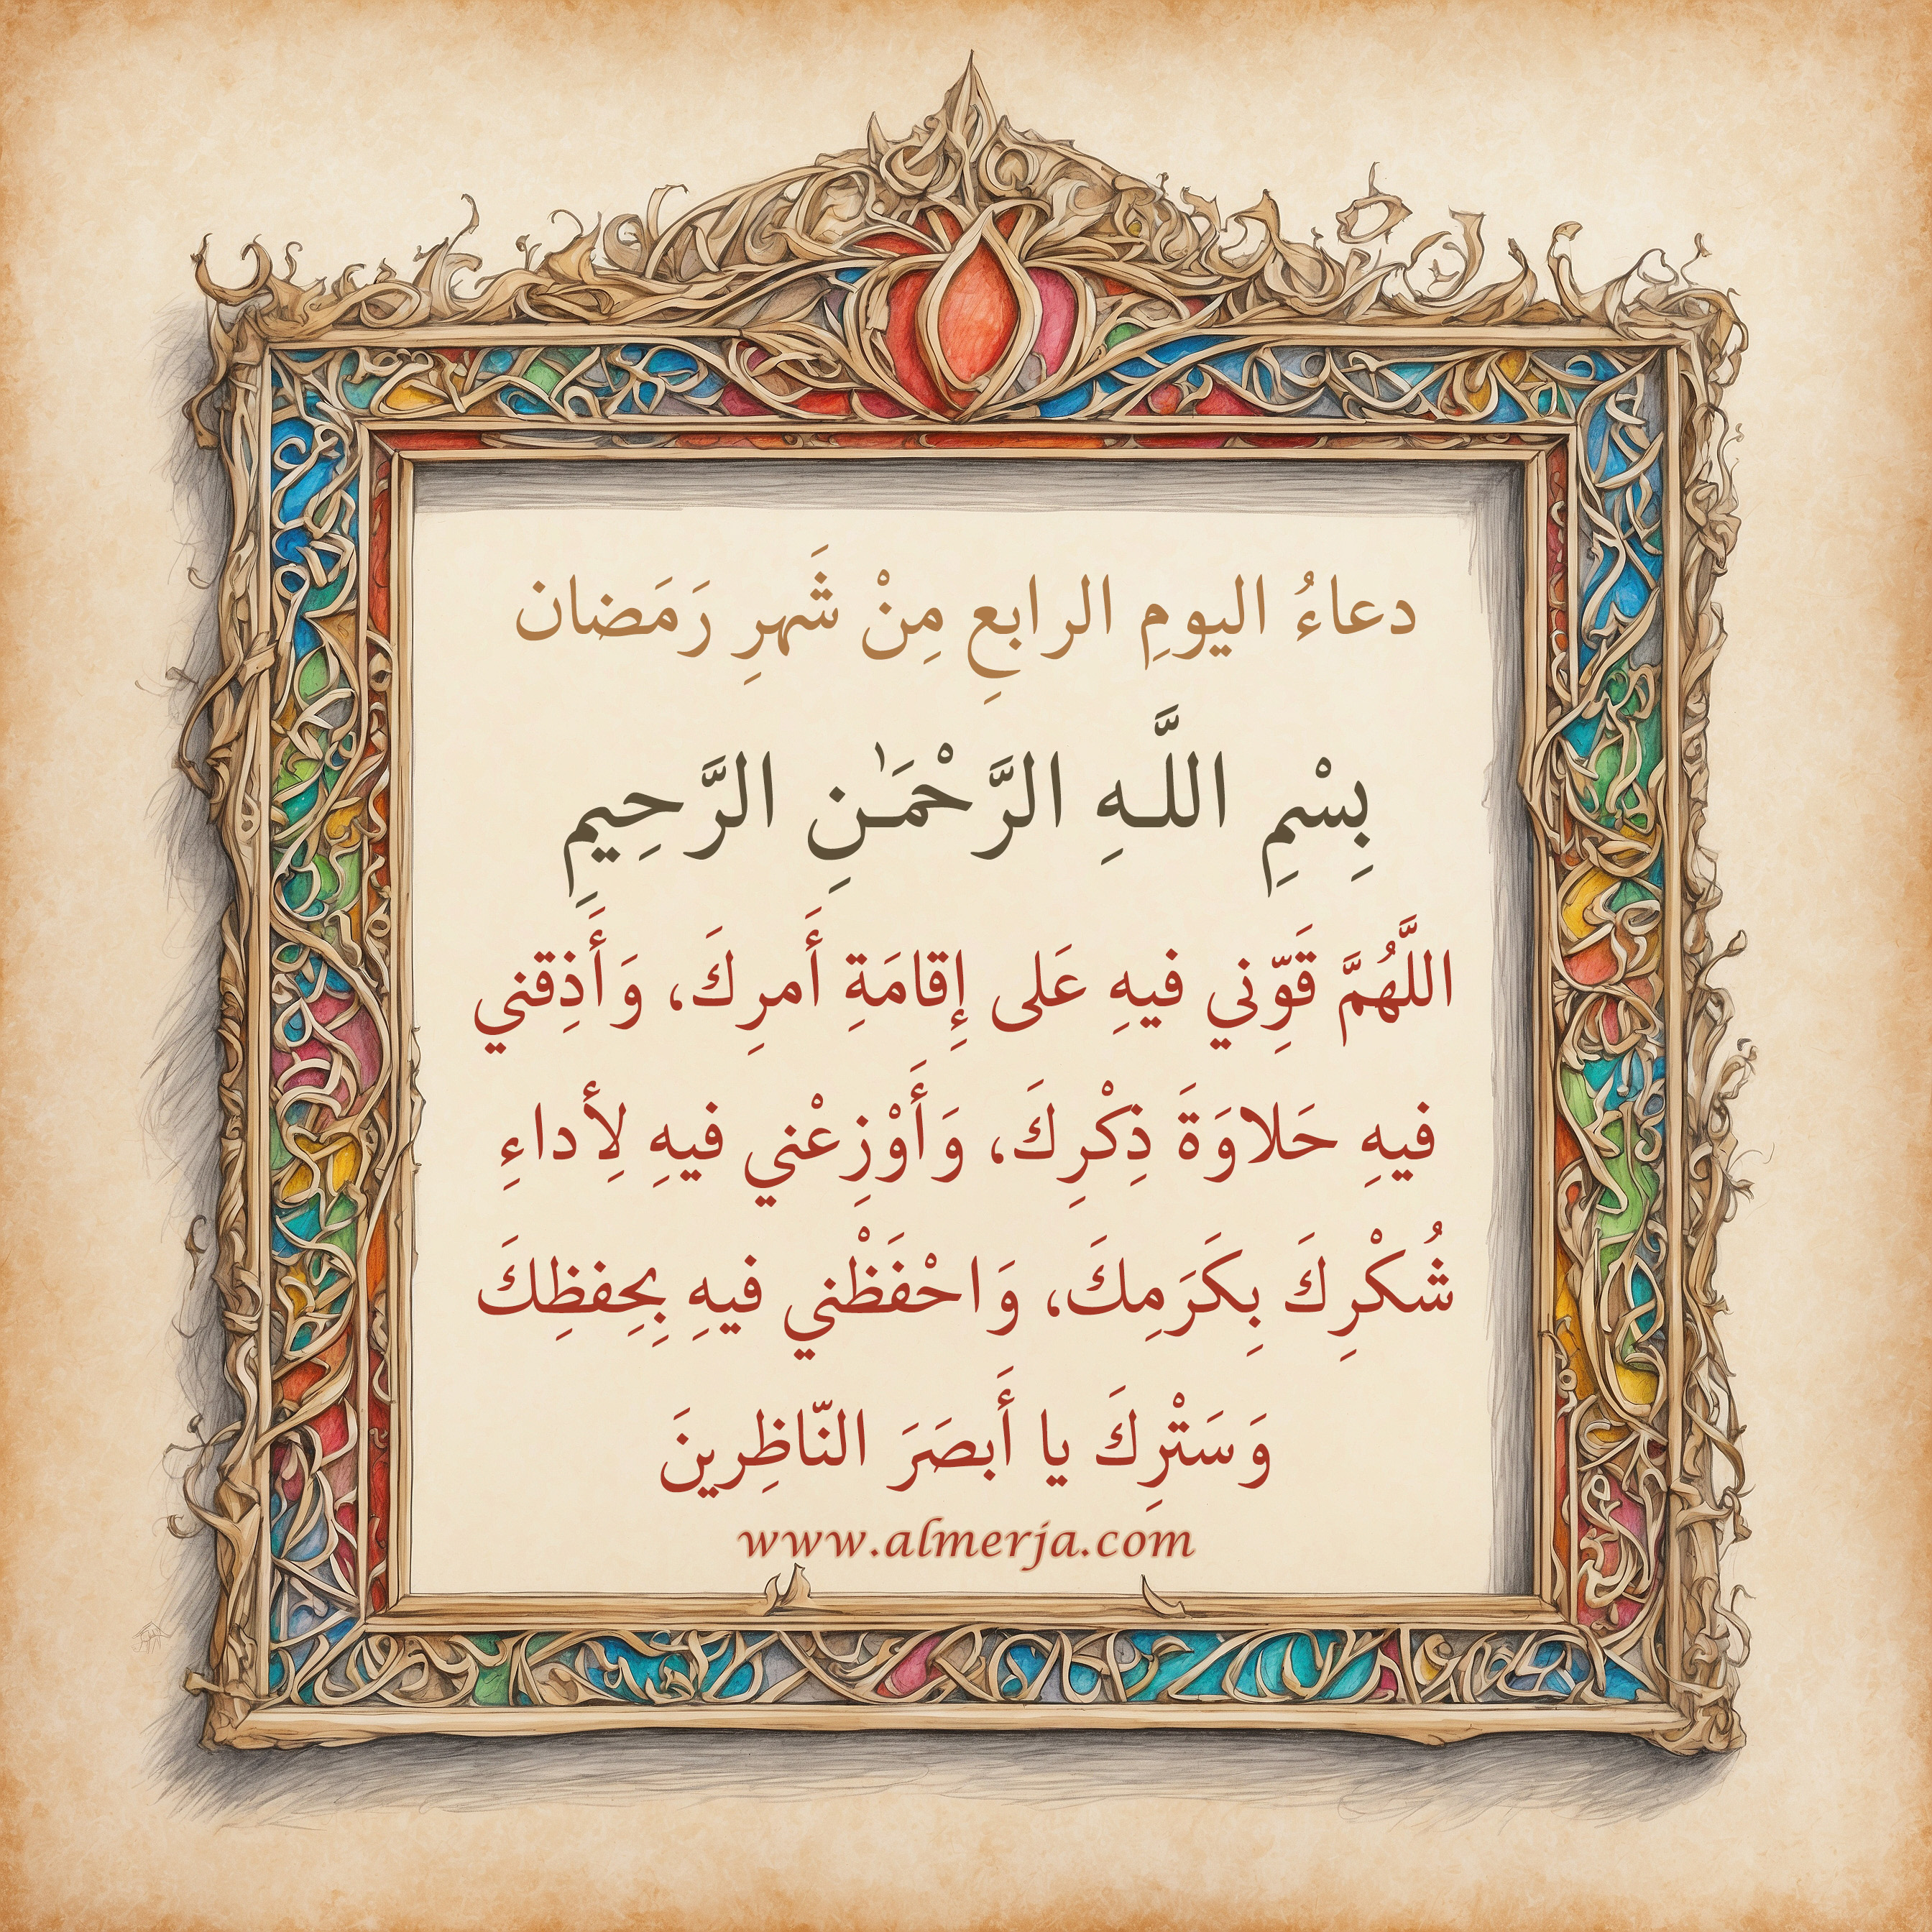 دعاءُ اليومِ الرابعِ مِنْ شَهرِ رَمَضان
بِسْمِ اللَّـهِ الرَّحْمَـٰنِ الرَّحِيمِ
اللَّهُمَّ قَوِّني فيهِ عَلى إِقامَةِ أَمرِكَ، وَأَذِقني
فيهِ حَلاوَةَ ذِكْرِكَ، وَأَوْزِعْني فيهِ لِأداءِ
شُكْرِكَ بِكَرَمِكَ، وَاحْفَظْني فيهِ بِحِفظِكَ
وَسَتْرِكَ يا أَبصَرَ النّاظِرينَ
www.almerja.com